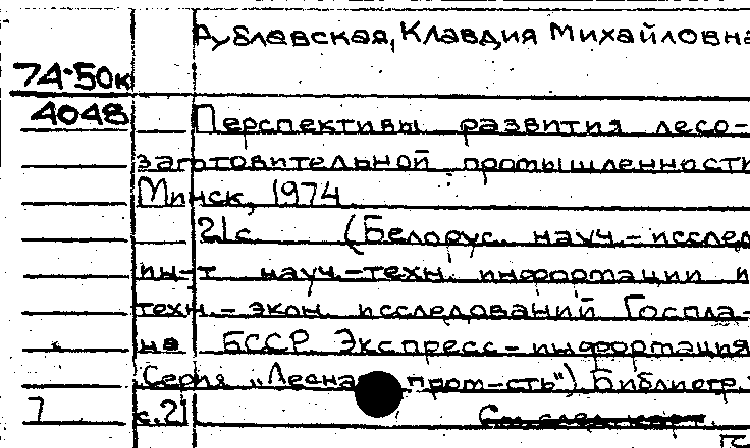 Аублавская, Клавдия Михайловна
74-50к
4048
Перспективы развития лесо-
заготовительной промышленности
Минск, 1974
21с. (Белорус. науч.-исслед
ин-т науч.-техн. информации и
техн.-экон. исследований Госпла-
на БССР Экспресс-информация
Серия „Лесная пром-сть") Библиогр.:
7 с.21 См. след. карт.